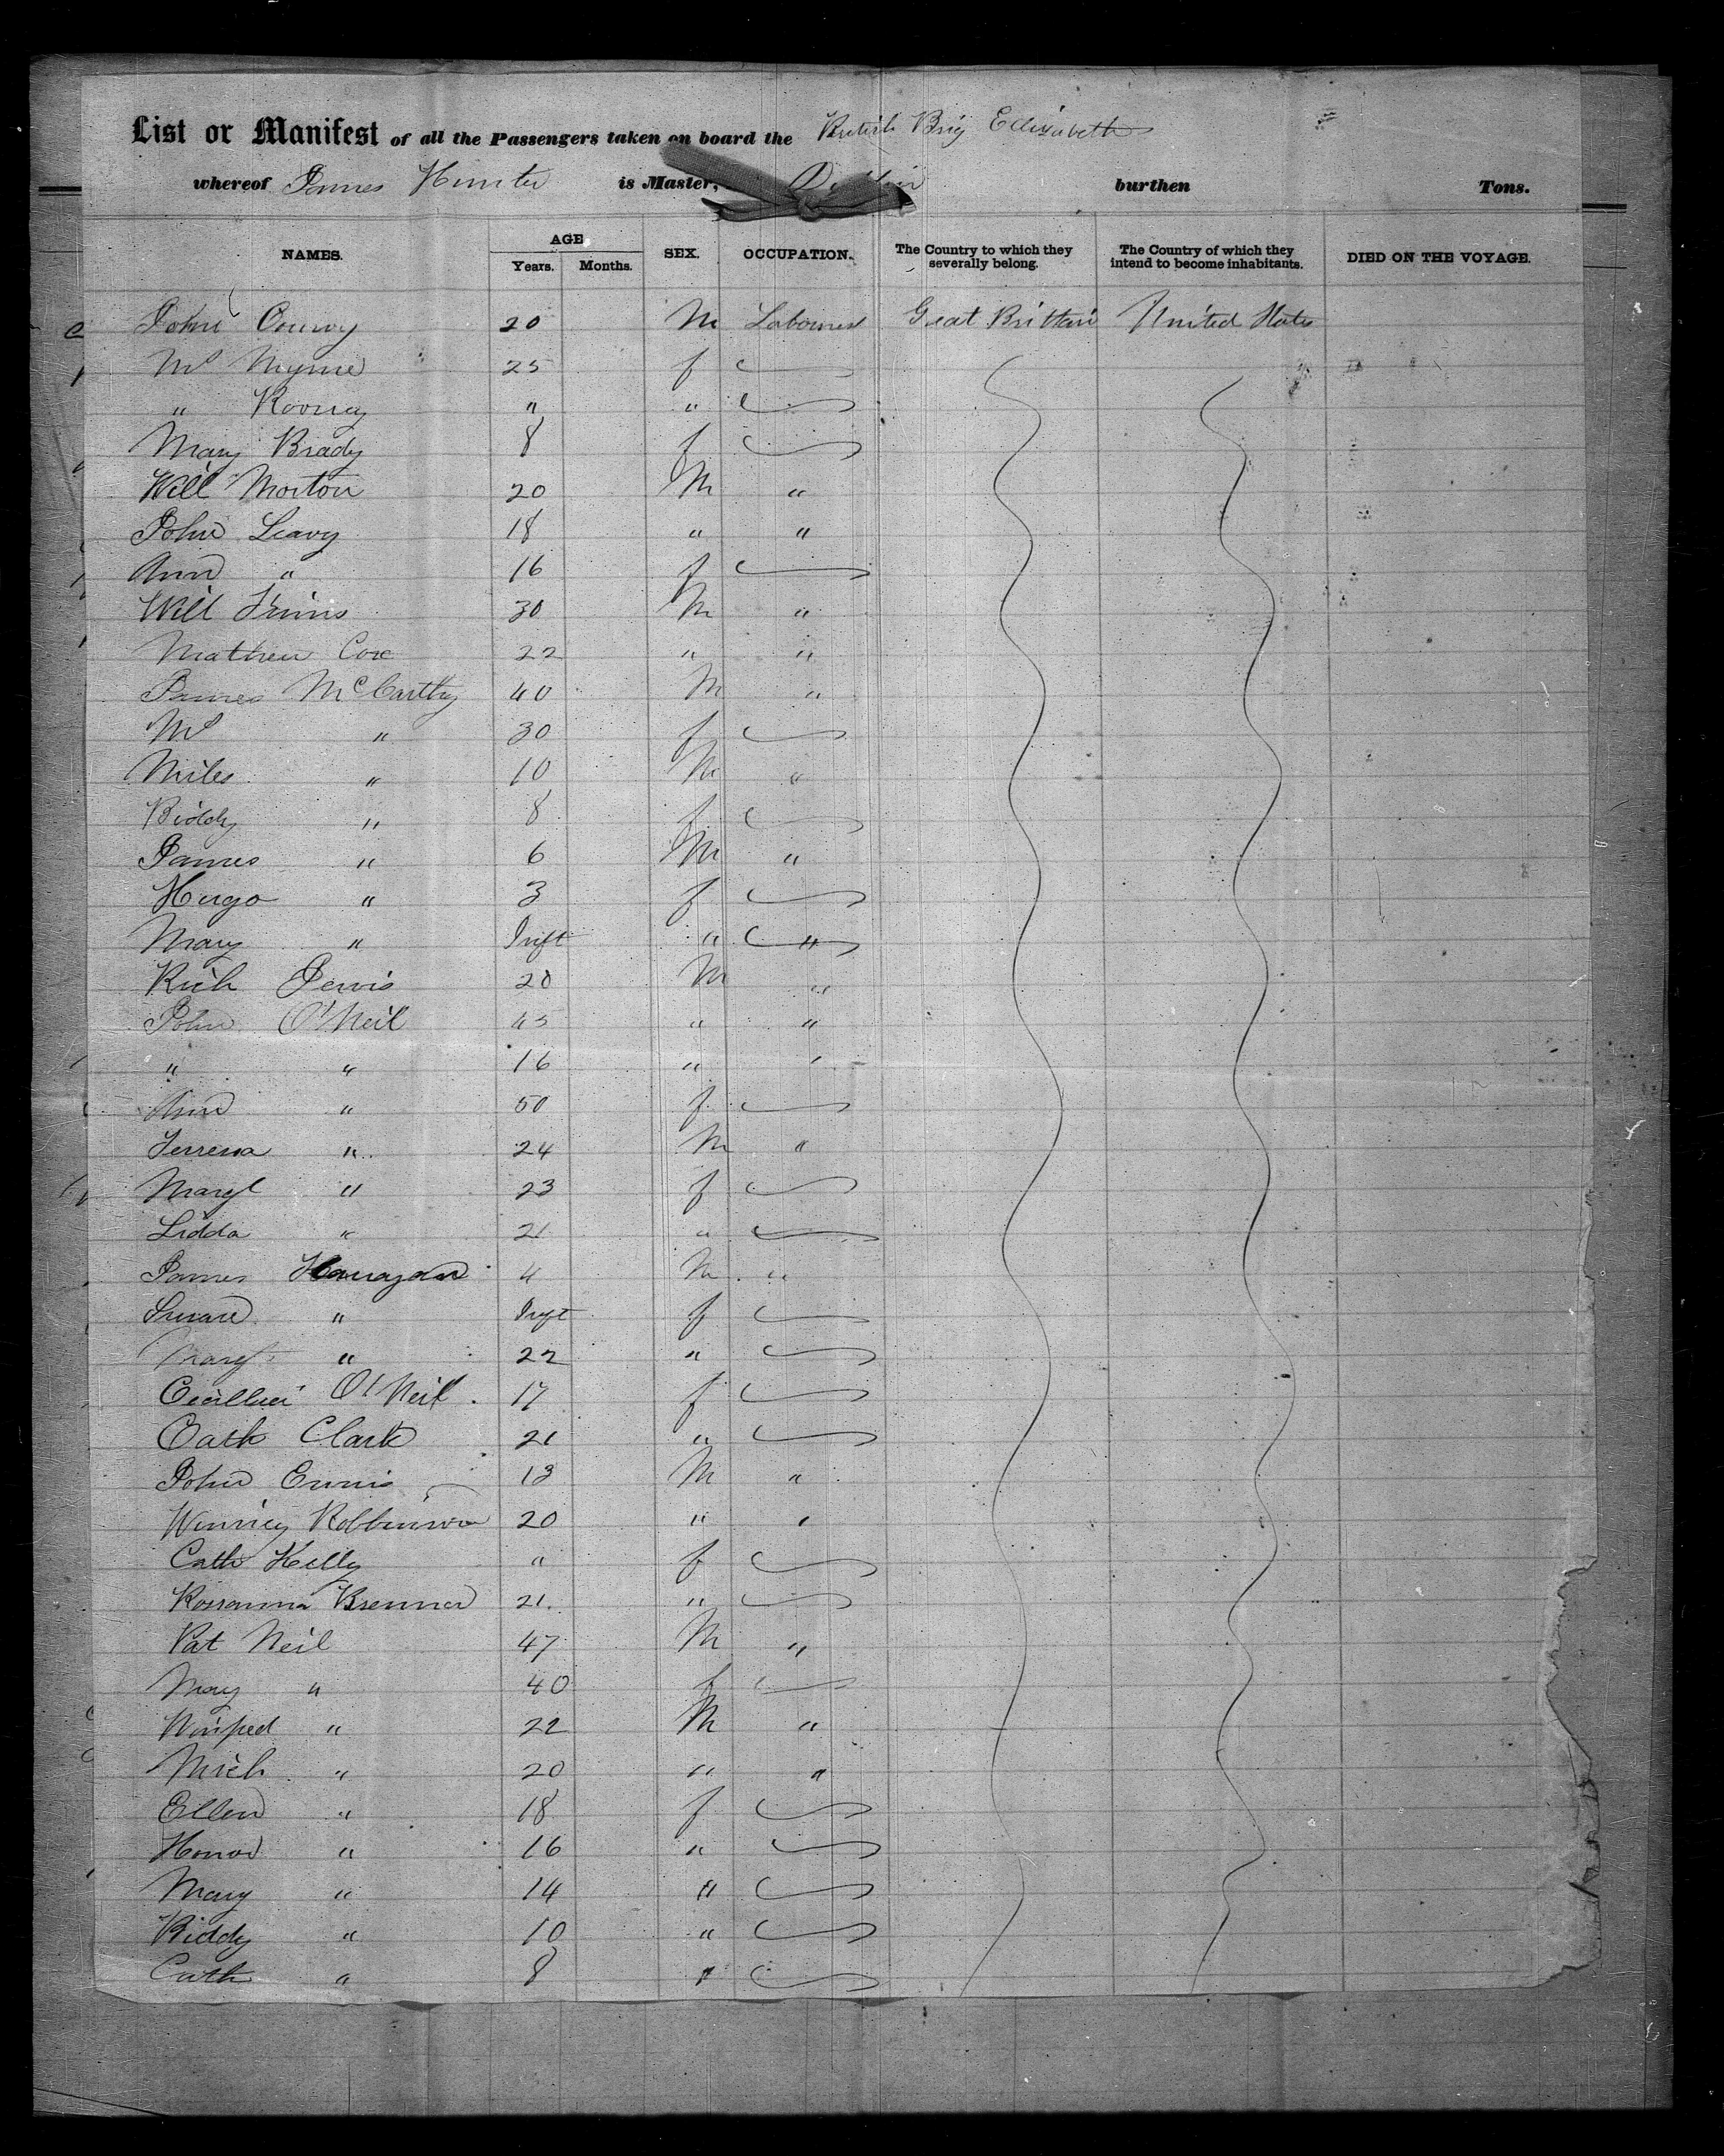 List or Manifest of all the Passengers taken on board the British Brig Elizabeth
whereof James Hunter is Master, burthen Tons.
NAMES. AGE Years. Months. SEX. OCCUPATION. The Country to which they severally belong. The Country of which they intend to become inhabitants. DIED ON THE VOYAGE.
John 20 M Labourer Great Brittain United States
Ms 25 f
" Rooney " "
Mary Brady 8 f
Will Morton 20 M "
John Leavy 18 " "
Ann " 16 f
Will 30 M "
Mathew Cox 22 " "
James McCarthy 40 M "
Ms " 30 f
Miles " 10 M "
Biddy " 8 f
James " 6 M "
Hugo " 3 f
Mary " Inft " "
Rich Jervis 20 M "
John O'Neil 45 " "
" " 16 " "
Ann " 50 f
" 24 M "
Margt " 23 f
Lidda " 21 "
James Hanagan 4 M "
" Inft f
Margt " 22 "
O'Neil 17 f
Cath Clark 21 "
John Ennis 13 M "
Winney Robbinson 20 " "
Cath Kelly " f
Rossanna Brennan 21 "
Pat Neil 47 M "
Mary " 40 f
Winifred " 22 M "
Mich " 20 " "
Ellen " 18 f
Honor " 16 "
Mary " 14 "
Biddy " 10 "
Cath " 8 "